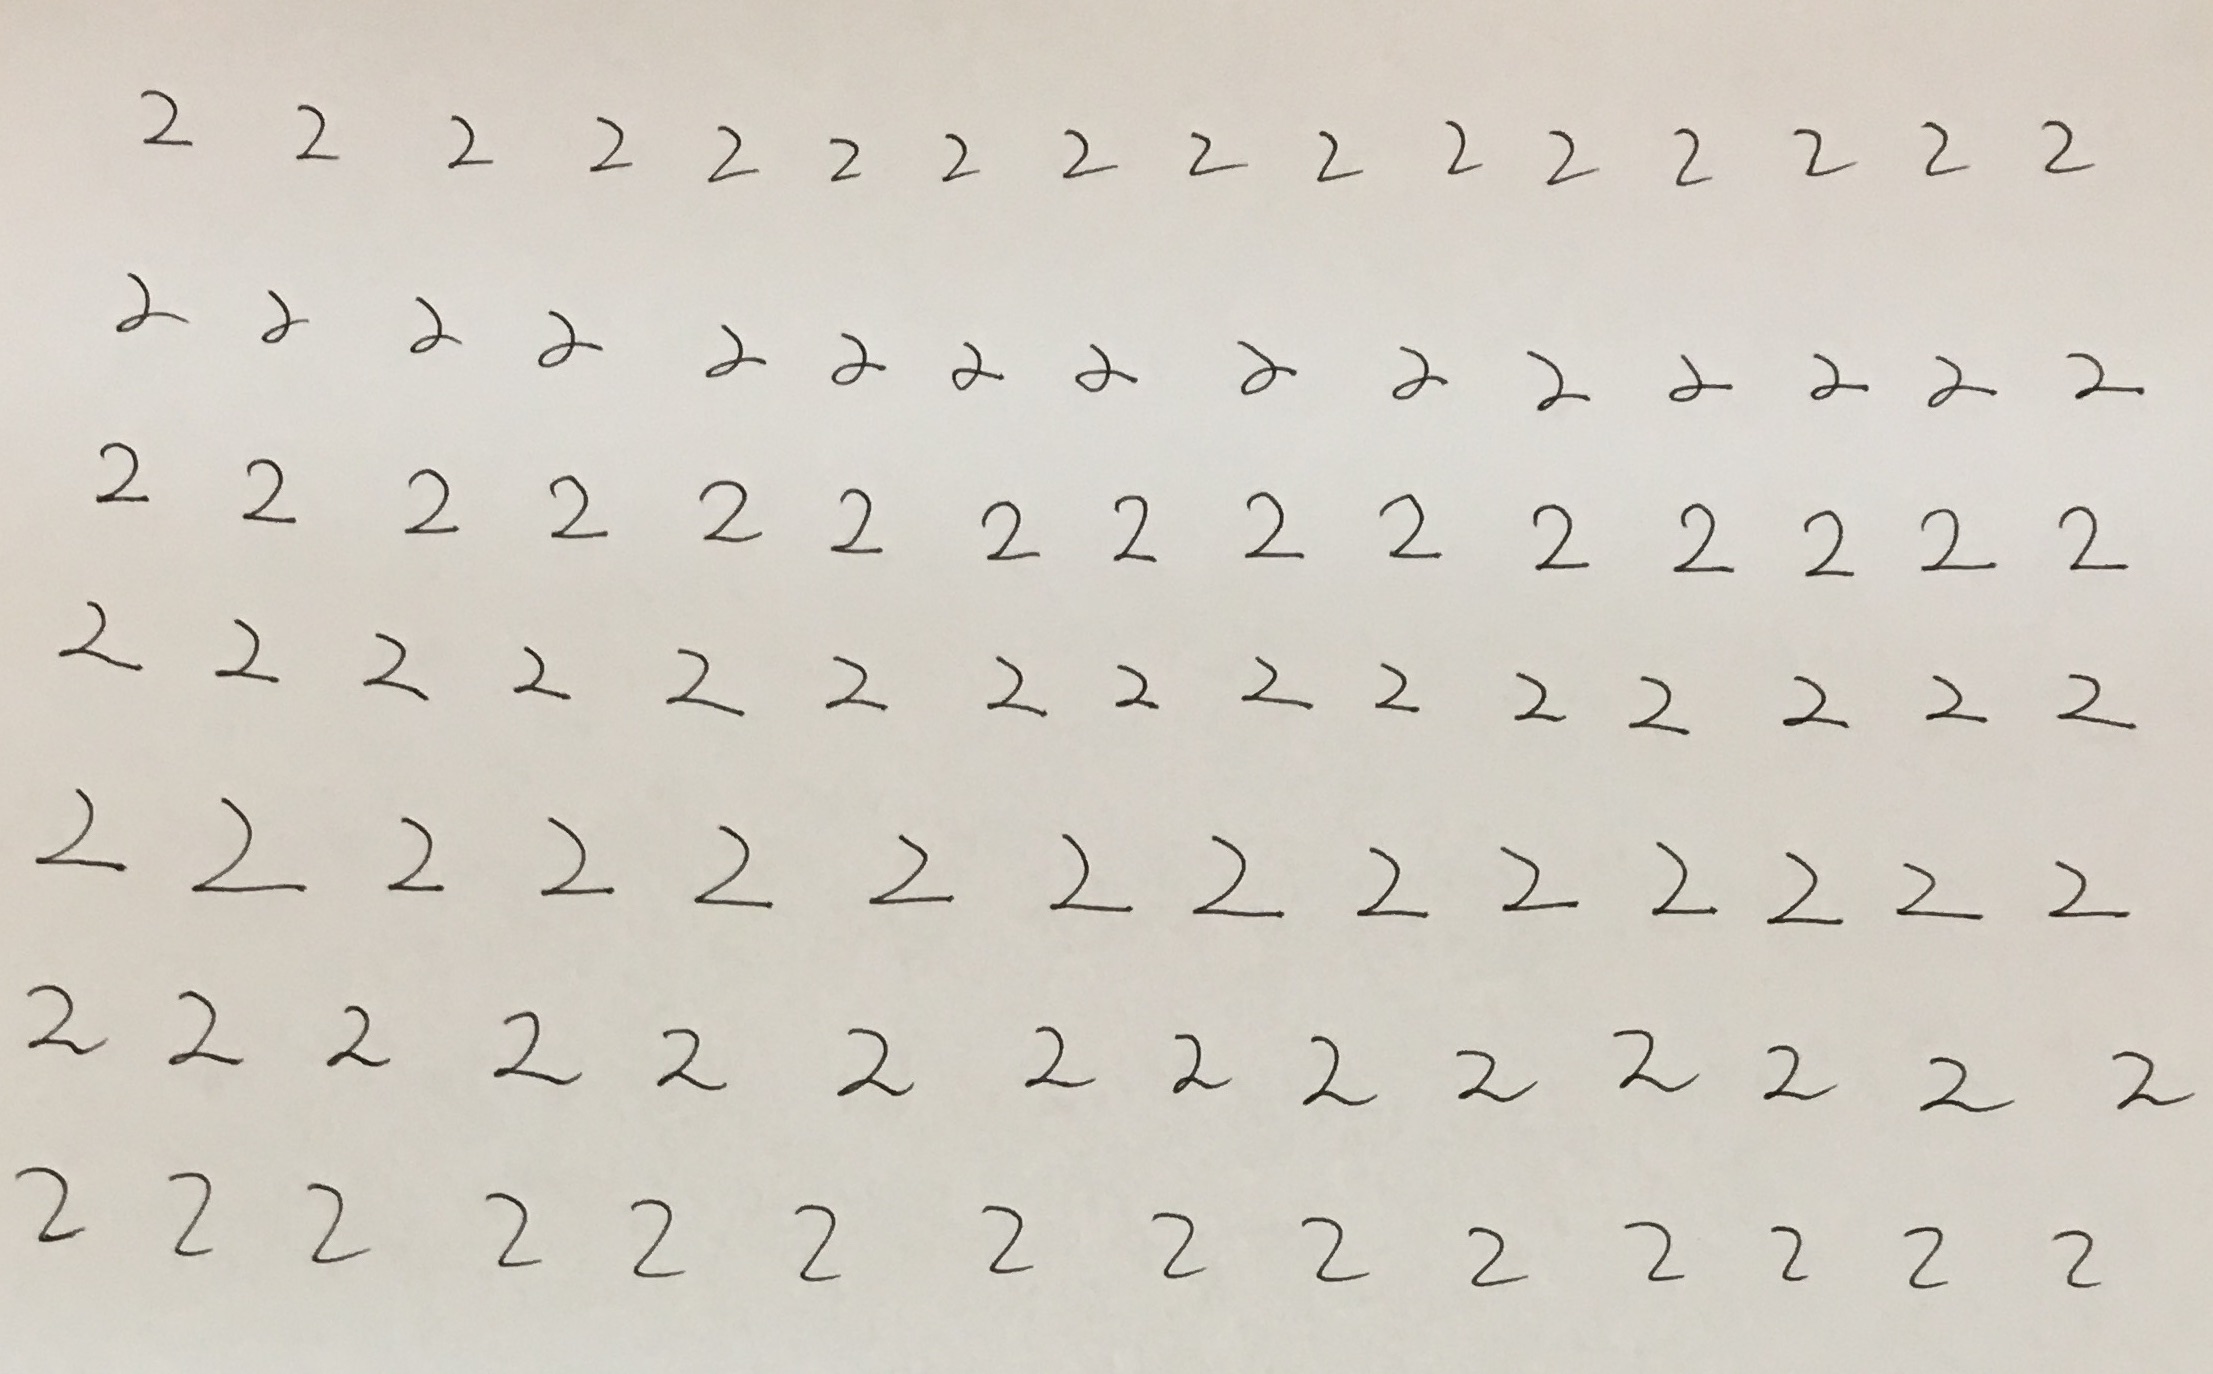 2 2 2 2 2 2 2 2 2 2 2 2 2 2 2 2
2 2 2 2 2 2 2 2 2 2 2 2 2 2 2
2 2 2 2 2 2 2 2 2 2 2 2 2 2 2
2 2 2 2 2 2 2 2 2 2 2 2 2 2 2
2 2 2 2 2 2 2 2 2 2 2 2 2 2
2 2 2 2 2 2 2 2 2 2 2 2 2 2
2 2 2 2 2 2 2 2 2 2 2 2 2 2